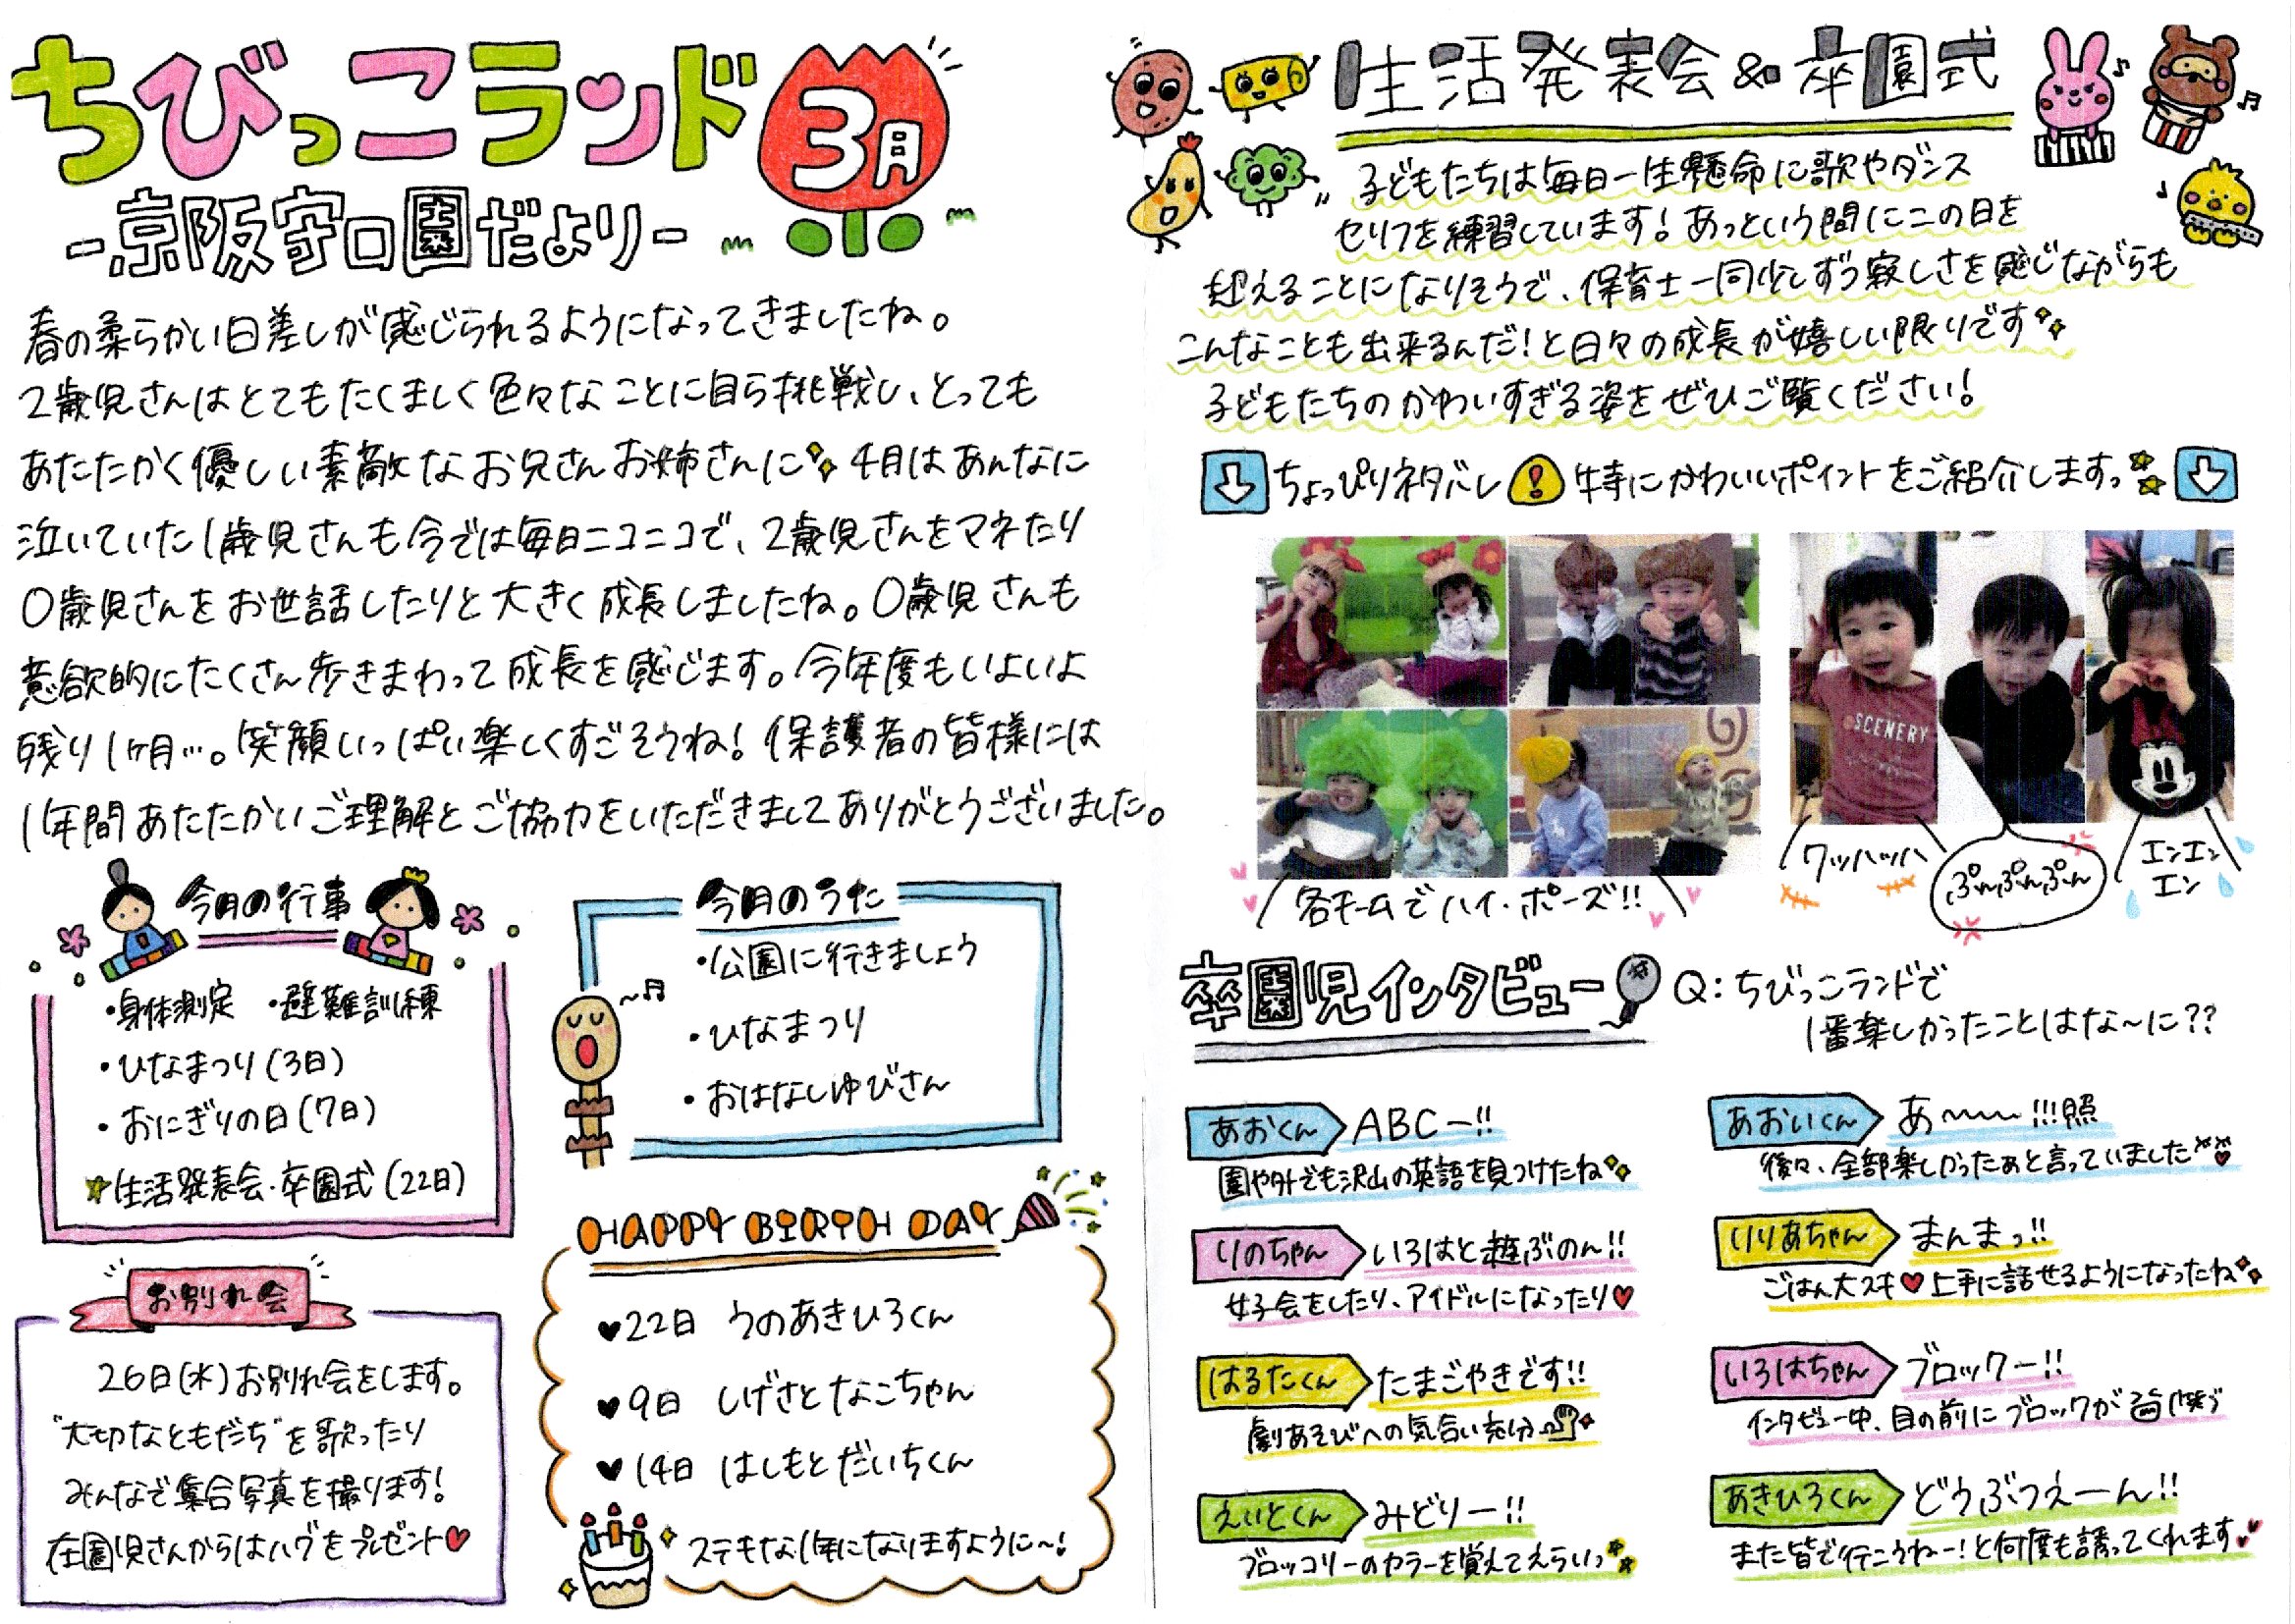 ちびっこランド
3月
-京阪守口園だより-
春の柔らかい日差しが感じられるようになってきましたね。
2歳児さんはとてもたくましく色々なことに自ら挑戦し、とっても
あたたかく優しい素敵なお兄さんお姉さんに 4月はあんなに
泣いていた1歳児さんも今では毎日ニコニコで、2歳児さんをマネたり
0歳児さんをお世話したりと大きく成長しましたね。0歳児さんも
意欲的にたくさん歩きまわって成長を感じます。今年度もいよいよ
残り1ヶ月…。笑顔いっぱい楽しくすごそうね！保護者の皆様には
1年間あたたかいご理解とご協力をいただきましてありがとうございました。
今月の行事
・身体測定 ・避難訓練
・ひなまつり(3日)
・おにぎりの日(7日)
生活発表会・卒園式(22日)
今月のうた
・公園に行きましょう
・ひなまつり
・おはなしゆびさん
お別れ会
26日(水)お別れ会をします。
"大切なともだち"を歌ったり
みんなで集合写真を撮ります！
在園児さんからはハグをプレゼント
HAPPY BIRTH DAY
♥22日 うのあきひろくん
♥9日 しげさとなこちゃん
♥14日 はしもとだいちくん
ステキな1年になりますように〜！
生活発表会&卒園式
子どもたちは毎日一生懸命に歌やダンス
セリフを練習しています！あっという間にこの日を
迎えることになりそうで、保育士一同少しずつ寂しさを感じながらも
こんなことも出来るんだ！と日々の成長が嬉しい限りです
子どもたちのかわいすぎる姿をぜひご覧ください！
ちょっぴりネタバレ 特にかわいいポイントをご紹介します。
SCENERY
各チームでハイ・ポーズ!!
ワッハッハ
ぷんぷんぷん
エンエン
エン
卒園児インタビュー
Q：ちびっこランドで
1番楽しかったことはな〜に??
あおくん ABCー!!
園や外でも沢山の英語を見つけたね
りのちゃん いろはと遊ぶのん!!
女子会をしたり、アイドルになったり♥
はるたくん たまごやきです!!
劇あそびへの気合い充分
えいとくん みどりー!!
ブロッコリーのカラーを覚えてえらいっ
あおいくん あ〜〜〜!!!照
後々、全部楽しかったぁと言っていました
りりあちゃん まんまっ!!
ごはん大スキ♥上手に話せるようになったね
いろはちゃん ブロックー!!
インタビュー中、目の前にブロックが
あきひろくん どうぶつえーん!!
また皆で行こうねー！と何度も誘ってくれます